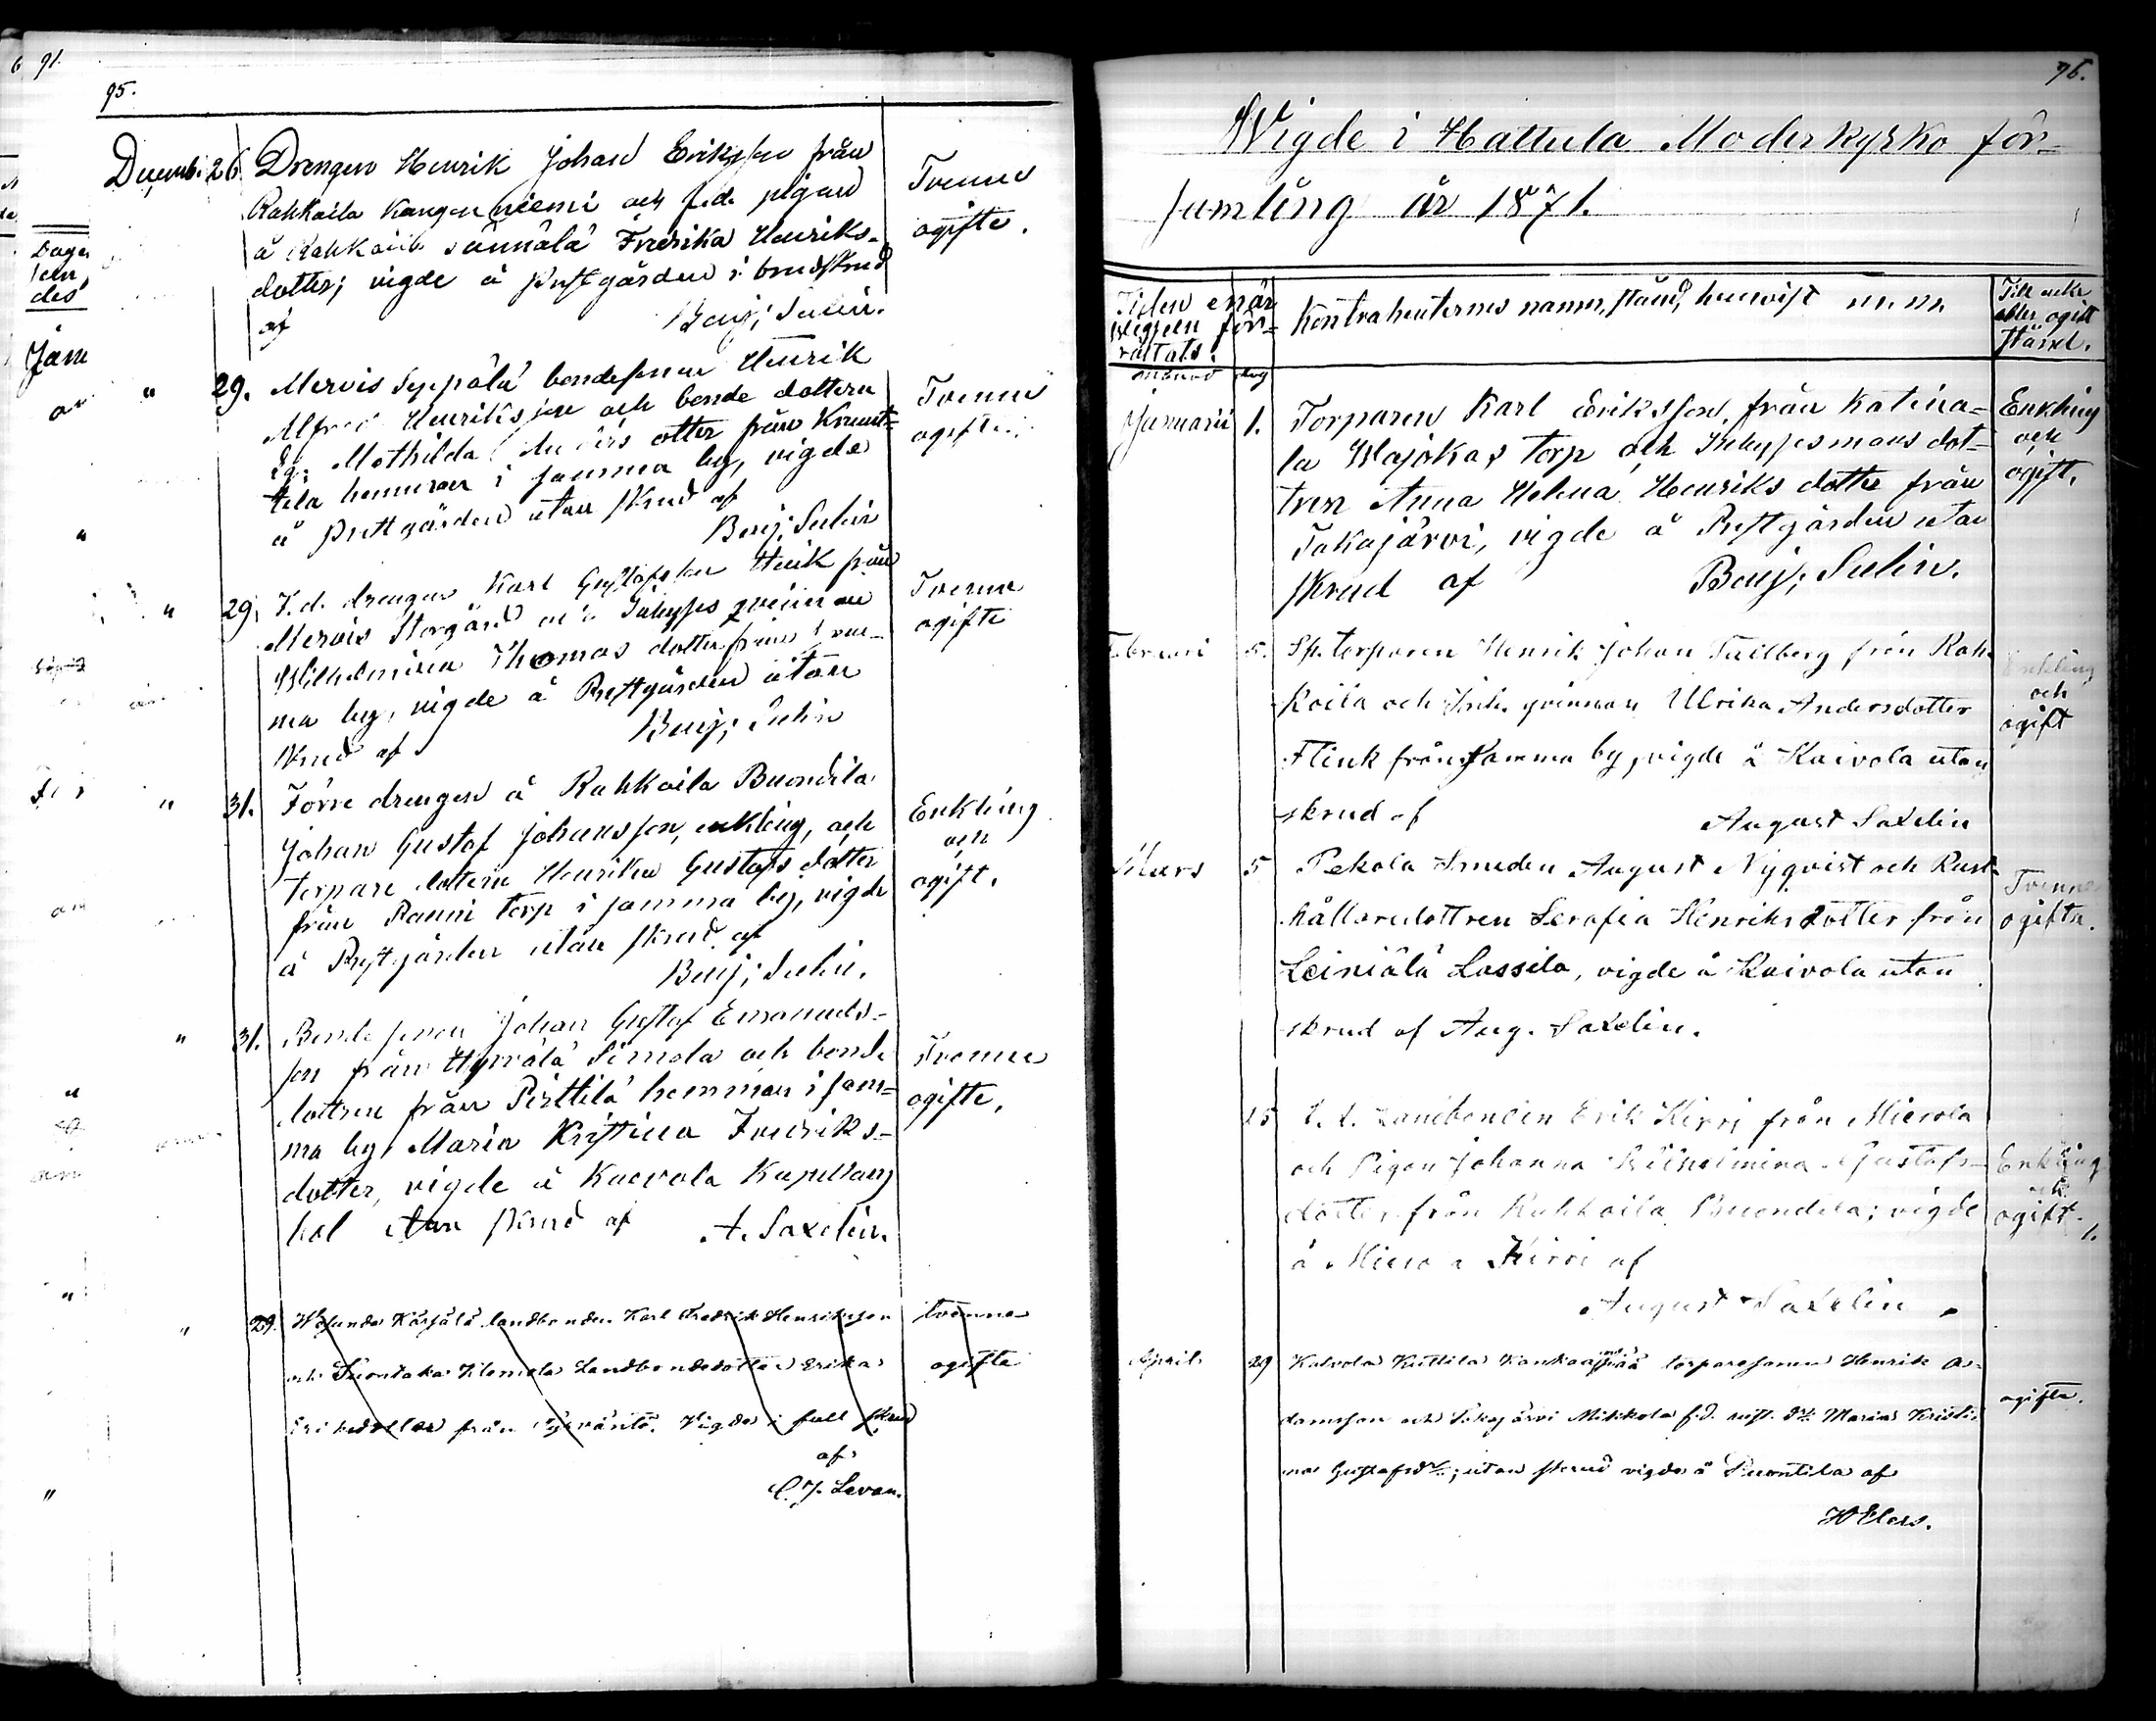 91.
95.
Decemb. 26. Drengen Henrik Johan Eriksson från
Rahkoila Kangasniemi och f.d. pigan
å Rahkoila Fredrika Henriks-
dotter; vigde å Prestgården i brudskrud
af Benj; Sulin.
Tvenne
ogifte.
" 29. Mervis Seppälä bondesonen Henrik
Alfred Henriksson och bonde dottren
Mathilda Anders dotter från Krunt-
tila hemman i samma by, vigde
å Prestgården utan skrud af
Benj; Sulin
Tvenne
ogifte.
" 29. F.d. drengen Karl Gustafsson från
Mervis Storgård och Inhyses qvinnan
Wilhelmina Thomas dotter från sam-
ma by, vigde å Prestgården utan
skrud af Benj; Sulin
Tvenne
ogifte
" 31. Förre drengen å Rahkoila Buondila
Johan Gustaf Johansson, enkling, och
torpare dottern Henrika Gustafs dotter
från Rauni torp i samma by, vigde
å Prestgården utan skrud af
Benj; Sulin.
Enkling
och
ogift.
" 31. Bonde sonen Johan Gustaf Emanuels-
son från Hyrvälä Simola och bonde
dottren från Pirttilä hemman i sam-
ma by Maria Kristina Fredriks-
dotter, vigde å Kaivola Kapellans
bol utan skrud af A. Saxelin.
Tvenne
ogifte.
" 29. Karjälä landbonden Karl Fredrik Henriksson
och Suontaka Klemola Landbondedotter Erika
Eriksdotter från Vigde i full skrud
af
C. J. Levan.
tvenne
ogifte
76.
Wigde i Hattula Moderkyrko för-
samling år 1871.
Tiden enär
wigseln för-
rättats.
månad dag
Kontrahenternes namn, stånd, hemvist m. m.
Till enke
eller ogift
stånd.
Januarii 1. Torparen Karl Eriksson från Katina-
la Wajokas torp och Inhysesmans dot-
tren Anna Helena Henriks dotter från
Takajärvi, vigde å Prestgården utan
skrud af Benj; Sulin.
Enkling
och
ogift.
Februari 5. Sp. torparen Henrik Johan Tallberg från Rah-
koila och Inh. qvinnan Ulrika Andersdotter
Flink från samma by, vigde å Kaivola utan
skrud af August Saxelin
Enkling
och
ogift
Mars 5 Pekola Smeden August Nyqvist och Rust-
hållaredottren Serafia Henriksdotter från
Leiniälä Lassila, vigde å Kaivola utan
skrud af Aug. Saxelin.
Tvenne
ogifta.
15 Landbonden Erik Kirri från Mierola
och Pigan Johanna Wilhelmina Gustafs-
dotter från Rahkoila Buondila; vigde
å Mierola Kirri af
August Saxelin.
Enkling
och
ogift.
April 29 Kalvola Kuttila torparesonen Henrik A-
damsson och Takajärvi Mikkola f.d. Maria Kristi-
na Gustafsdr; utan skrud vigde å Suontila af
H Elers.
ogifte.